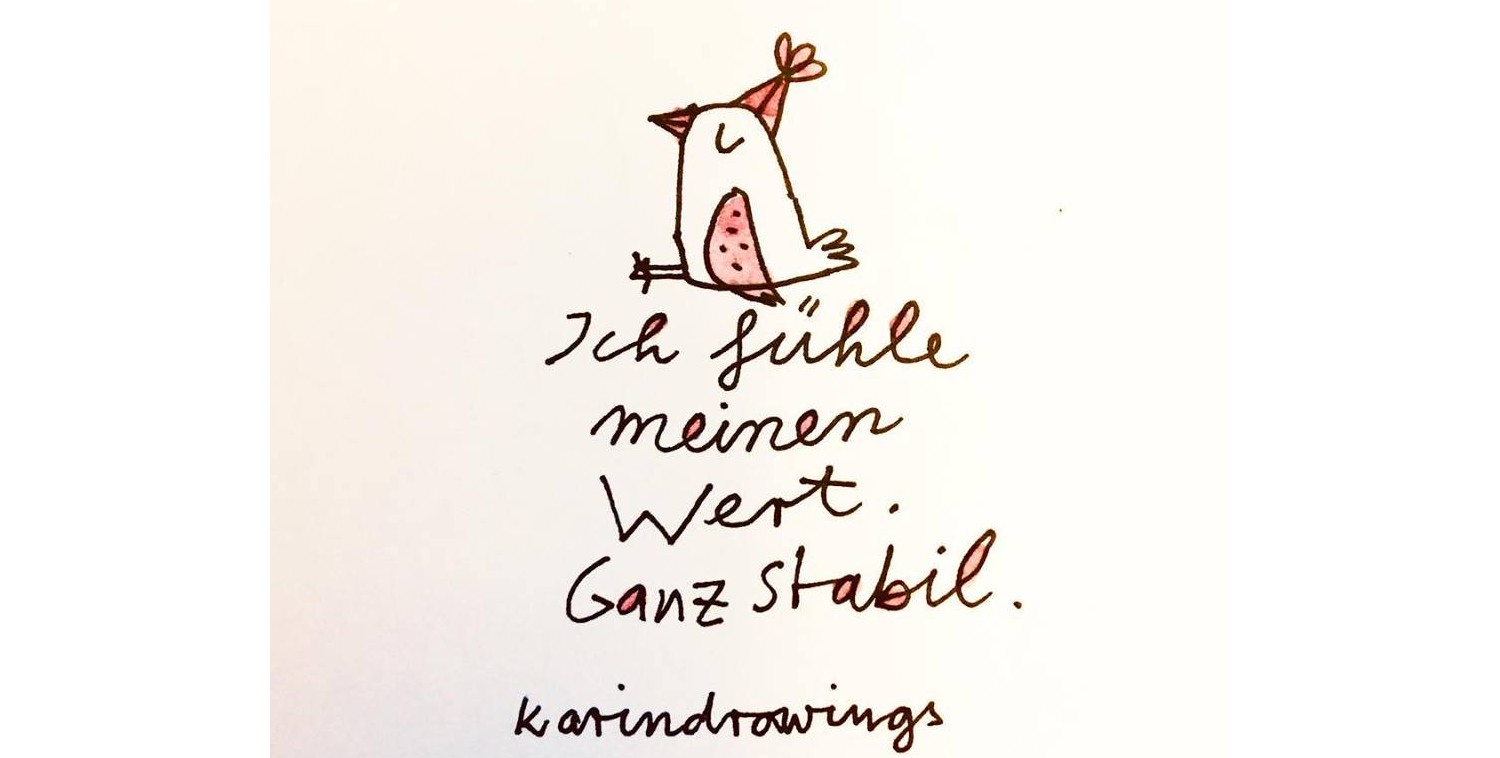 Ich fühle
meinen
Wert.
Ganz stabil.
karindrawings